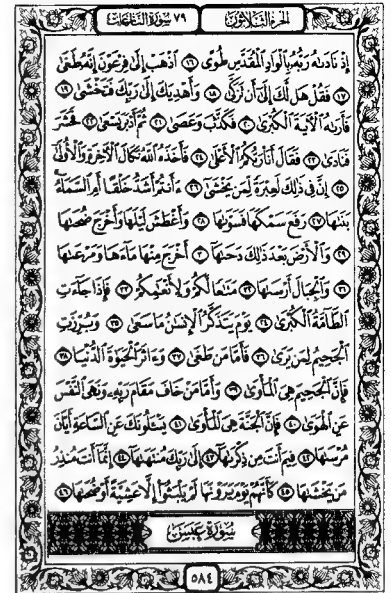 الجزء الثلاثون
٧٩ سورة النازعات
إِذْ نَادَىٰهُ رَبُّهُۥ بِٱلْوَادِ ٱلْمُقَدَّسِ طُوًى ١٦ ٱذْهَبْ إِلَىٰ فِرْعَوْنَ إِنَّهُۥ طَغَىٰ
١٧ فَقُلْ هَل لَّكَ إِلَىٰٓ أَن تَزَكَّىٰ ١٨ وَأَهْدِيَكَ إِلَىٰ رَبِّكَ فَتَخْشَىٰ ١٩
فَأَرَىٰهُ ٱلْءَايَةَ ٱلْكُبْرَىٰ ٢٠ فَكَذَّبَ وَعَصَىٰ ٢١ ثُمَّ أَدْبَرَ يَسْعَىٰ ٢٢ فَحَشَرَ
فَنَادَىٰ ٢٣ فَقَالَ أَنَا۠ رَبُّكُمُ ٱلْأَعْلَىٰ ٢٤ فَأَخَذَهُ ٱللَّهُ نَكَالَ ٱلْءَاخِرَةِ وَٱلْأُولَىٰٓ
٢٥ إِنَّ فِى ذَٰلِكَ لَعِبْرَةً لِّمَن يَخْشَىٰٓ ٢٦ ءَأَنتُمْ أَشَدُّ خَلْقًا أَمِ ٱلسَّمَآءُ
بَنَىٰهَا ٢٧ رَفَعَ سَمْكَهَا فَسَوَّىٰهَا ٢٨ وَأَغْطَشَ لَيْلَهَا وَأَخْرَجَ ضُحَىٰهَا
٢٩ وَٱلْأَرْضَ بَعْدَ ذَٰلِكَ دَحَىٰهَآ ٣٠ أَخْرَجَ مِنْهَا مَآءَهَا وَمَرْعَىٰهَا
٣١ وَٱلْجِبَالَ أَرْسَىٰهَا ٣٢ مَتَٰعًا لَّكُمْ وَلِأَنْعَٰمِكُمْ ٣٣ فَإِذَا جَآءَتِ
ٱلطَّآمَّةُ ٱلْكُبْرَىٰ ٣٤ يَوْمَ يَتَذَكَّرُ ٱلْإِنسَٰنُ مَا سَعَىٰ ٣٥ وَبُرِّزَتِ
ٱلْجَحِيمُ لِمَن يَرَىٰ ٣٦ فَأَمَّا مَن طَغَىٰ ٣٧ وَءَاثَرَ ٱلْحَيَوٰةَ ٱلدُّنْيَا ٣٨
فَإِنَّ ٱلْجَحِيمَ هِىَ ٱلْمَأْوَىٰ ٣٩ وَأَمَّا مَنْ خَافَ مَقَامَ رَبِّهِۦ وَنَهَى ٱلنَّفْسَ
عَنِ ٱلْهَوَىٰ ٤٠ فَإِنَّ ٱلْجَنَّةَ هِىَ ٱلْمَأْوَىٰ ٤١ يَسْـَٔلُونَكَ عَنِ ٱلسَّاعَةِ أَيَّانَ
مُرْسَىٰهَا ٤٢ فِيمَ أَنتَ مِن ذِكْرَىٰهَآ ٤٣ إِلَىٰ رَبِّكَ مُنتَهَىٰهَآ ٤٤ إِنَّمَآ أَنتَ مُنذِرُ
مَن يَخْشَىٰهَا ٤٥ كَأَنَّهُمْ يَوْمَ يَرَوْنَهَا لَمْ يَلْبَثُوٓا۟ إِلَّا عَشِيَّةً أَوْ ضُحَىٰهَا ٤٦
سورة عبس
٥٨٤